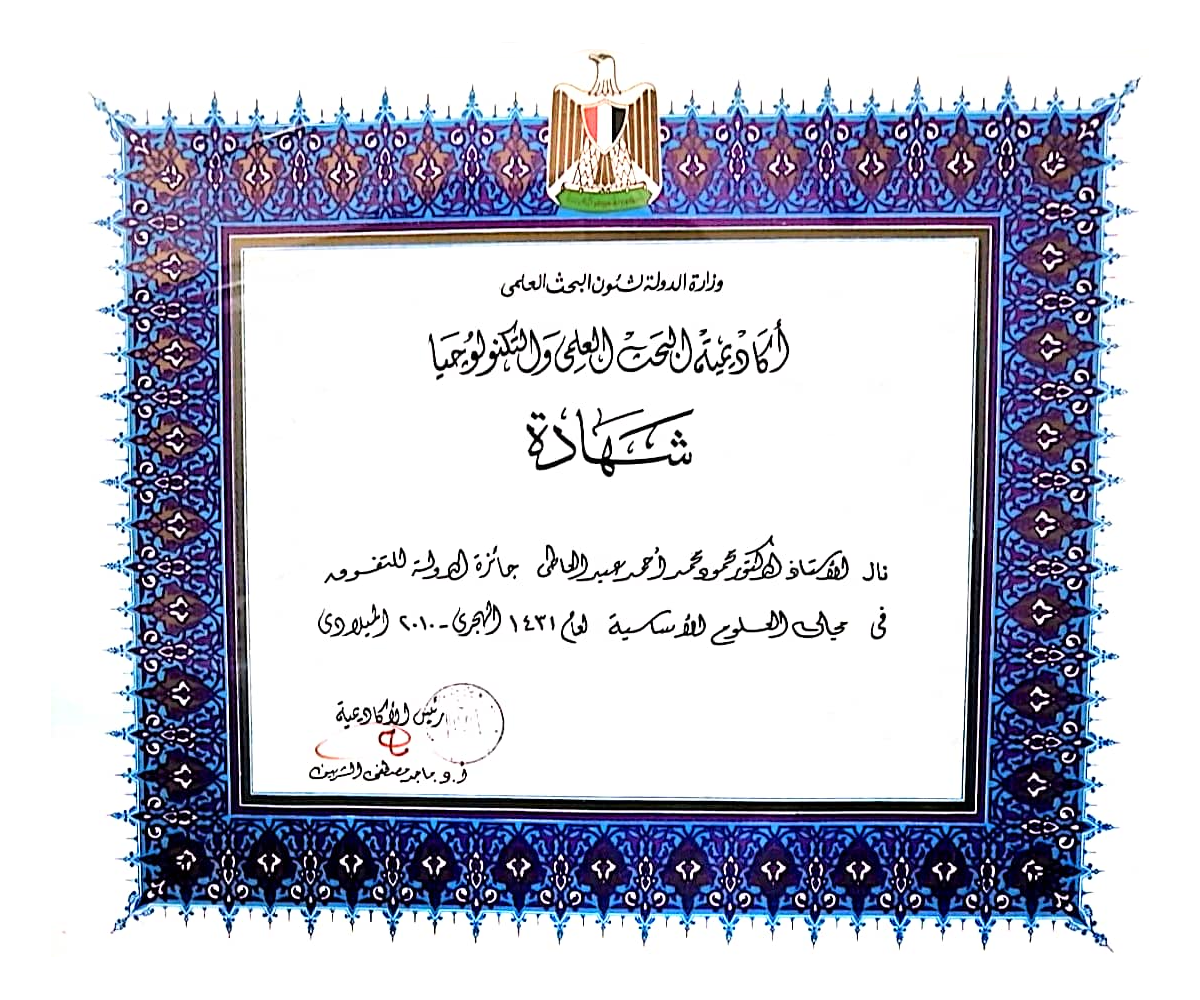 وزارة الدولة لشئون البحث العلمى
أكاديمية البحث العلمى والتكنولوجيا
شهادة
نال الأستاذ الدكتور محمود محمد أحمد عبد العاطى جائزة الدولة للتفوق
فى مجال العلوم الأساسية لعام ١٤٣١ الهجرى - ٢٠١٠ الميلادى
رئيس الأكاديمية
أ.د ماجد مصطفى الشربينى